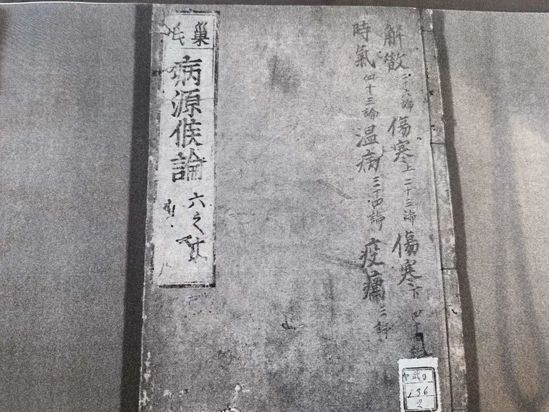 解散二十六論傷寒上二十三論傷寒下四十
時氣四十三論温病三十四論疫癘三論
巢氏
病源候論六之十
136
2